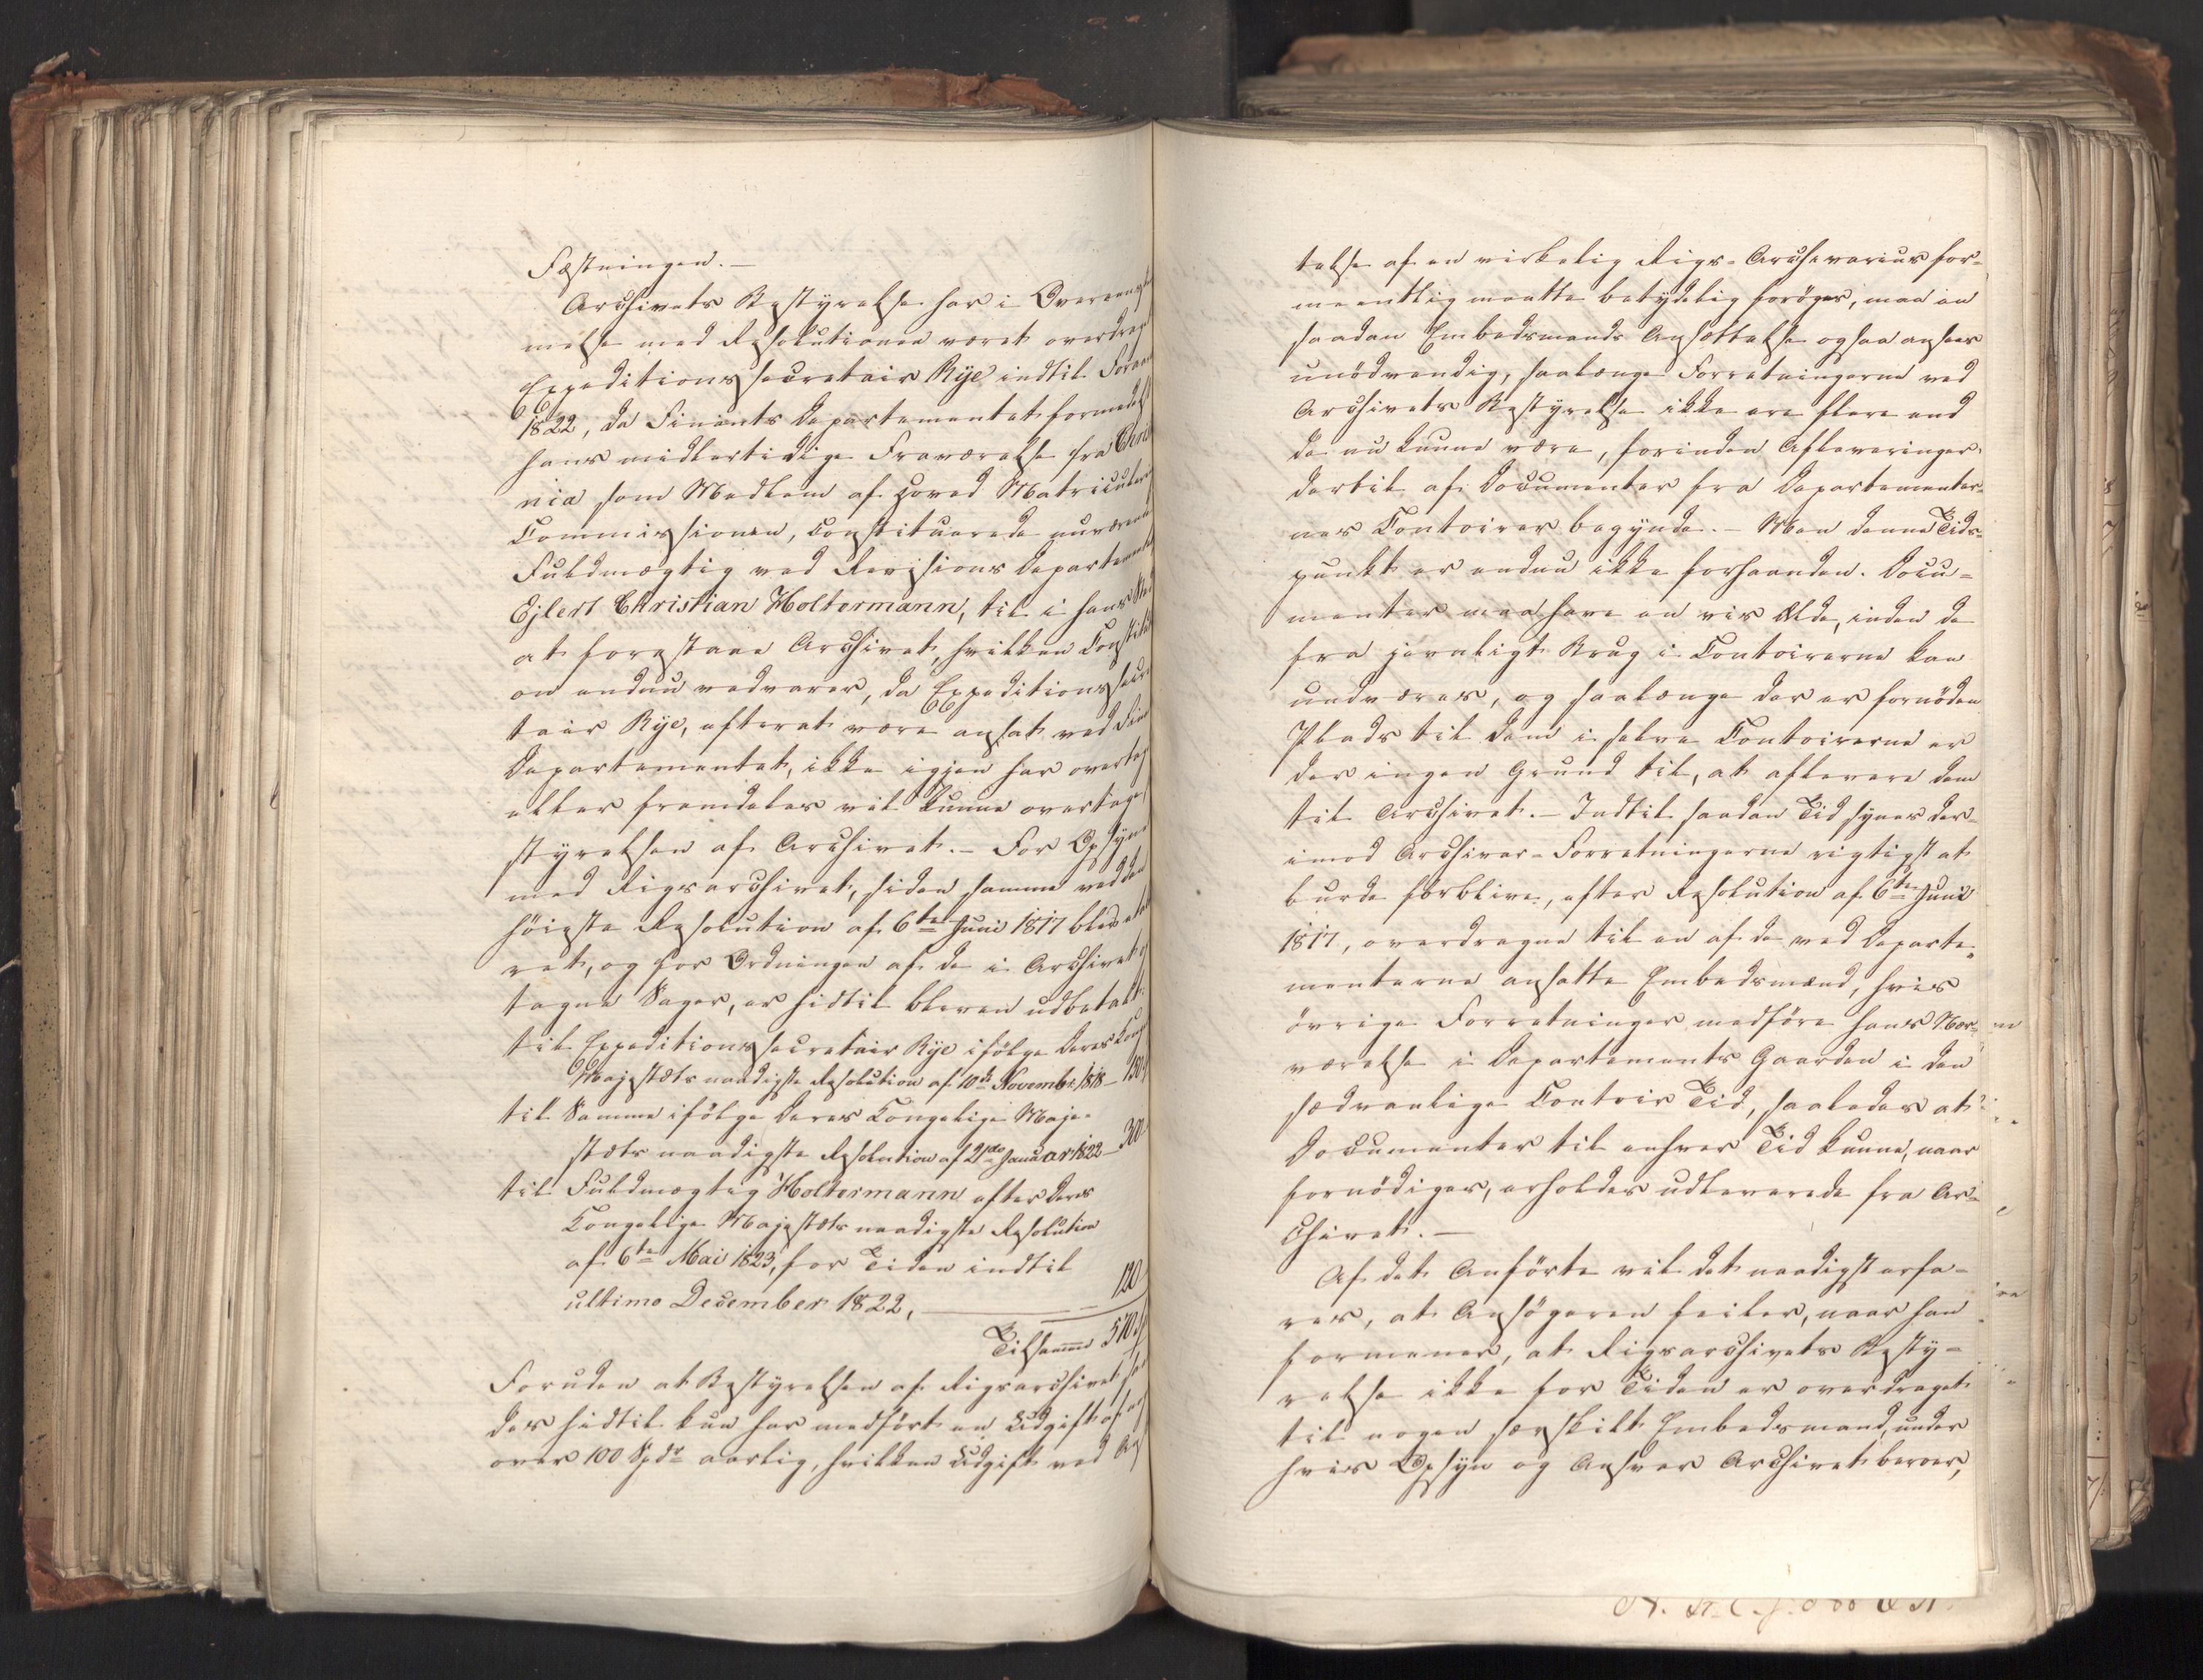 Fæstningen. —
Archivets Bestyrelse har i Overeens
melse med Resolutionen været overdrag
Expeditionssecretair Rye indtil Foraar
1822, da Finants Departementet formedelst
hans midlertidige Fraværelse fra Chri
nia som Medlem af Hoved Matriculerings
Commissionen, constituerede nuværende
Fuldmægtig ved Revisions Departementet
Ejlert Christian Holtermann, til i hans Sted
at forestaae Archivet, hvilken Constituti
on endnu vedvarer, da Expeditionssecre
tair Rye, efterat være ansat ved Fin
Departementet, ikke igjen har overtag
eller fremdeles vil kunne overtage
styrelsen af Archivet. — For Opsyn
med Rigsarchivet, siden samme ved den
höieste Resolution af 6te Juni 1817 blev etab
ret, og for Ordningen af de i Archivet
tagne Sager, er hidtil bleven udbetalt:
til Expeditionssecretair Rye ifölge Deres Kong
Majestæts naadigste Resolution af 10de Novembr 1818 —
til Samme ifölge Deres Kongelige Maje-
stæts naadigste Resolution af 21de Januar 1822 — 300
til Fuldmægtig Holtermann efter Deres
Kongelige Majestæts naadigste Resolution
af 6te Mai 1823, for Tiden indtil
ultimo December 1822, — 120
Tilsammen 570
Foruden at Bestyrelsen af Rigsarchivet
des hidtil kun har medfört en Udgift af
over 100 Spdr aarlig, hvilken Udgift ved Ans
telse af en virkelig Rigs-Archivarius for-
meentlig maatte betydelig foröges, maa en
saadan Embedsmands Ansættelse ogsaa ansees
unödvendig, saalænge Forretningerne ved
Archivets Bestyrelse ikke ere flere end
de nu kunne være, forinden Afleveringer
dertil af Documenter fra Departementer-
nes Contoirer begynde. — Men denne Tids-
punkt er endnu ikke forhaanden. Docu-
menter maa have en vis Ælde, inden de
fra jevnligt Brug i Contoirerne kan
undværes, og saalænge der er fornöden
Plads til dem i selve Contoirerne er
der ingen Grund til, at aflevere dem
til Archivet. — Indtil saadan Tid synes der-
imod Archivar-Forretningerne rigtigst at
burde forblive, efter Resolution af 6te Juni
1817, overdragne til en af de ved Departe-
menterne ansatte Embedsmænd, hvis
övrige Forretninger medföre hans Nær-
værelse i Departements Gaarden i den
sædvanlige Contoir Tid, saaledes at
Documenter til enhver Tid kunne, naar
fornödiges, erholdes udleverede fra Ar-
chivet. —
Af det Anförte vil det naadigst erfa-
res, at Ansögeren feiler, naar han
formener, at Rigsarchivets Besty-
relse ikke for Tiden er overdraget
til nogen særskilt Embedsmand, under
hvis Opsyn og Ansvar Archivet beroer,